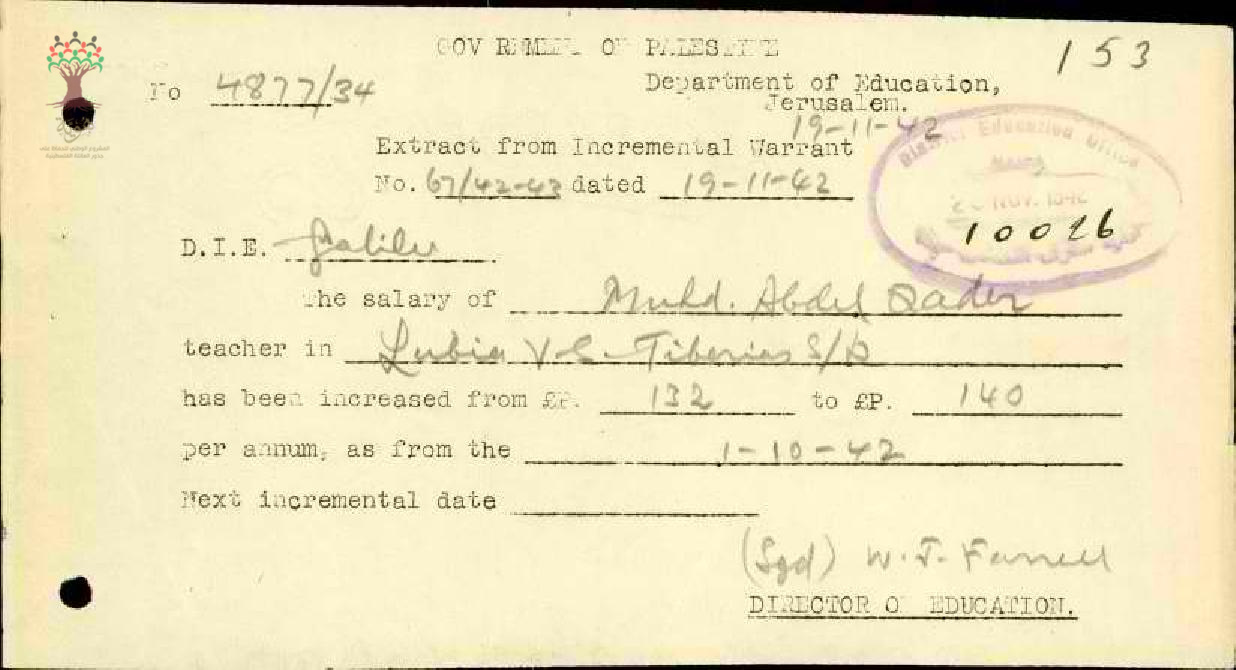 GOVERNMENT OF PALESTINE
153
No 4877/34
Department of Education,
Jerusalem.
19-11-42
Extract from Incremental Warrant
No. 67/42-43 dated 19-11-42
District Education Office
NOV. 1942
10026
D.I.E. Galilee
The salary of Muhd. Abdel Qader
teacher in Lubia V-S- Tiberias S/D
has been increased from £P. 132 to £P. 140
per annum, as from the 1-10-42
Next incremental date
(Sgd) W. J. Farrell
DIRECTOR OF EDUCATION.